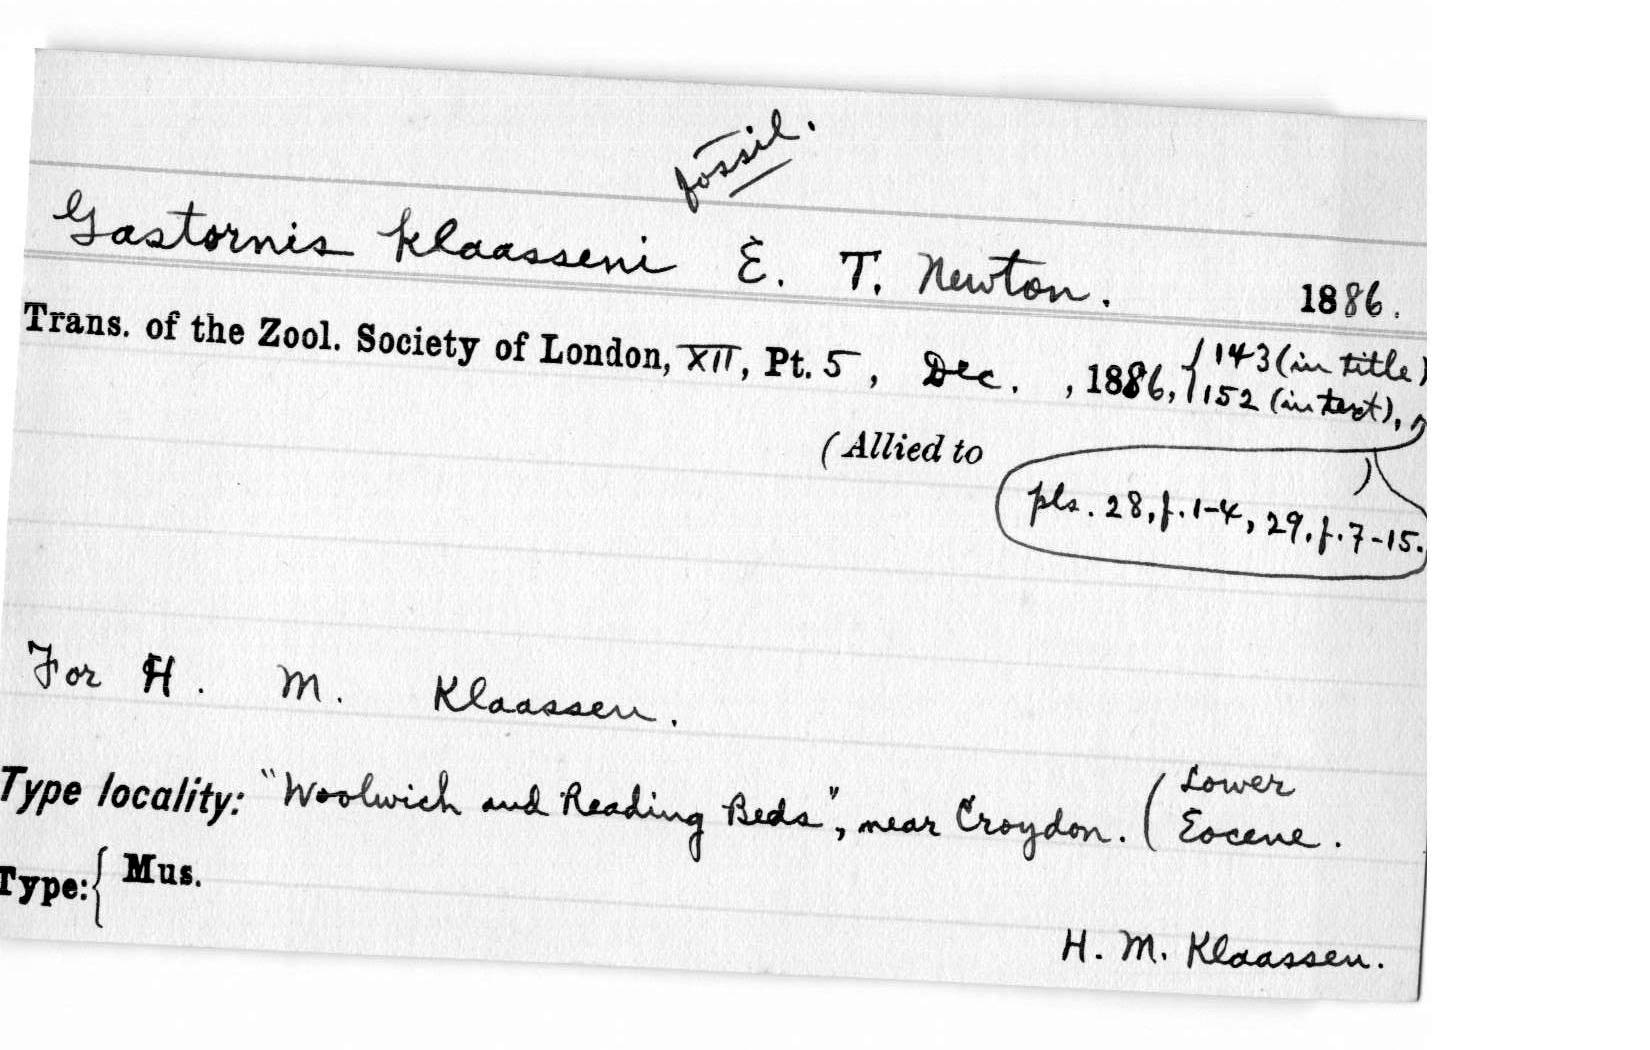 fossil.
Gastornis klaasseni E. T. Newton. 1886.
Trans. of the Zool. Society of London, XII, Pt. 5, Dec. , 1886, { 143 (in title)
152 (in text),
(Allied to )
pls. 28, f. 1-4, 29, f. 7-15.
For H. M. Klaassen.
Type locality: "Woolwich and Reading Beds", near Croydon. ( Lower
Eocene.
Type: { Mus.
H. M. Klaassen.